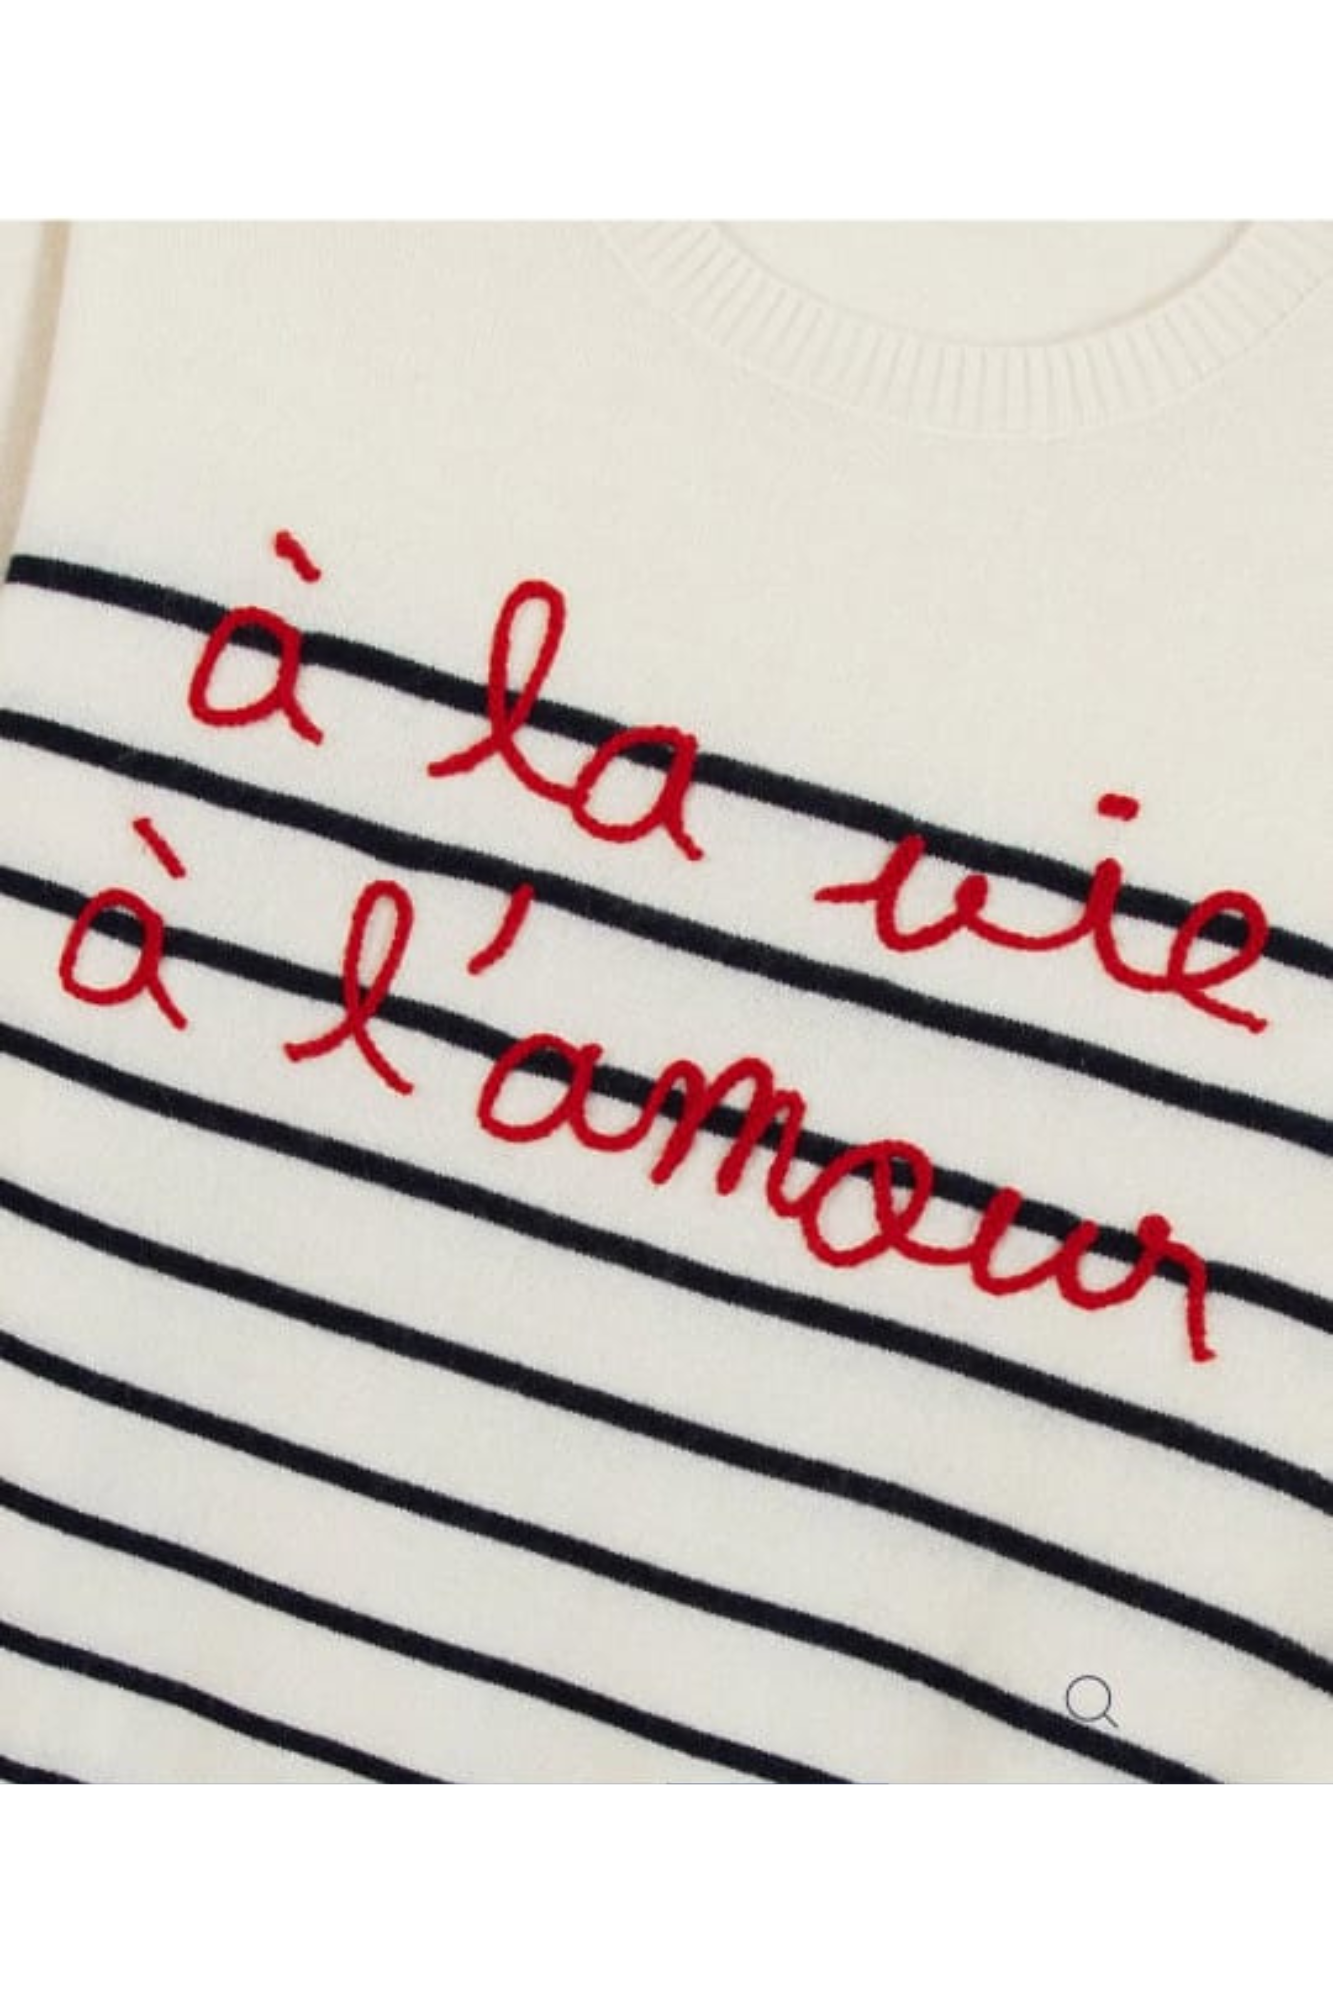 à la vie
à l'amour